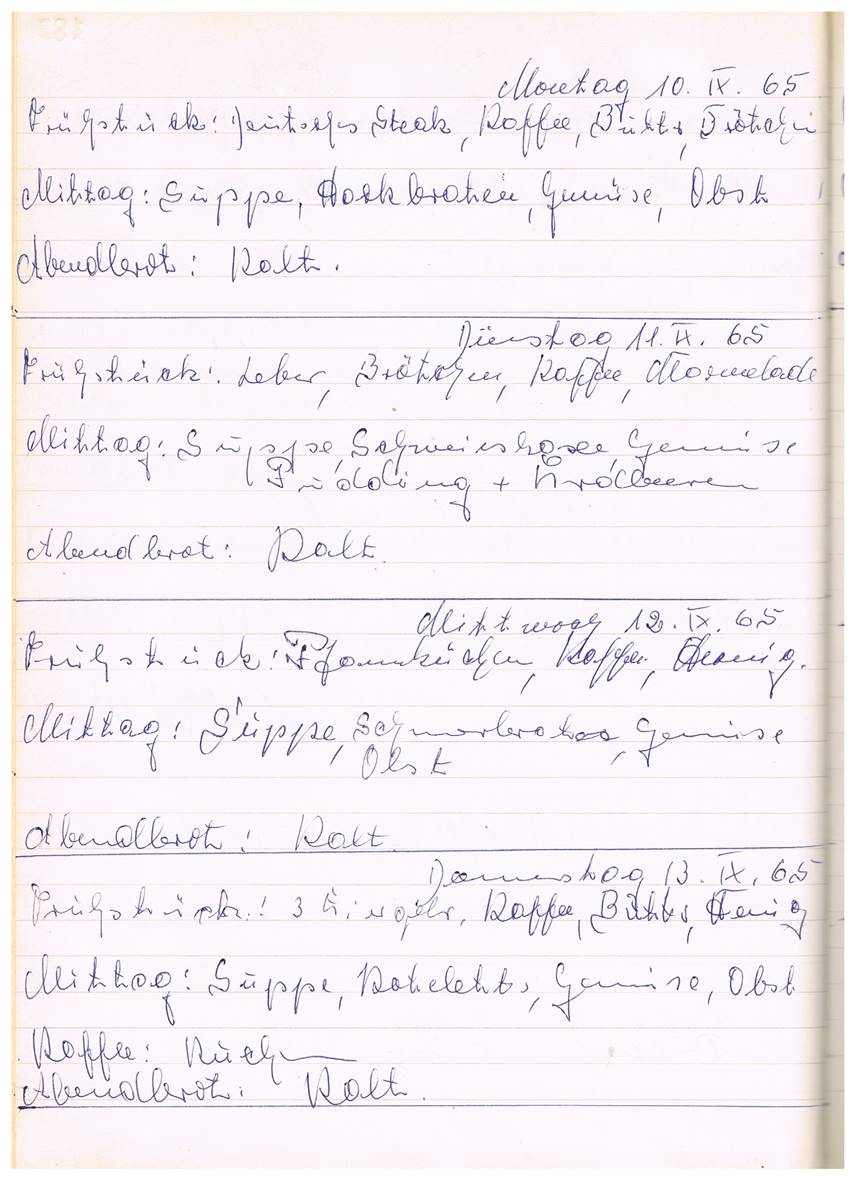 Montag 10. IX. 65
Frühstück: Deutsches Steak, Kaffee, Butter, Brötchen
Mittag: Suppe, Hackbraten, Gemüse, Obst
Abendbrot: Kalt.
Dienstag 11. IX. 65
Frühstück: Leber, Brötchen, Kaffee, Marmelade
Mittag: Suppe, Gemüse
Pudding + Erdbeeren
Abendbrot: Kalt.
Mittwoch 12. IX. 65
Frühstück: Pfannkuchen, Kaffee, Honig.
Mittag: Suppe, Schmorbraten, Gemüse
Obst
Abendbrot: Kalt.
Donnerstag 13. IX. 65
Frühstück: 3 Kaffee, Butter, Honig
Mittag: Suppe, Koteletts, Gemüse, Obst
Kaffee: Kuchen
Abendbrot: Kalt.